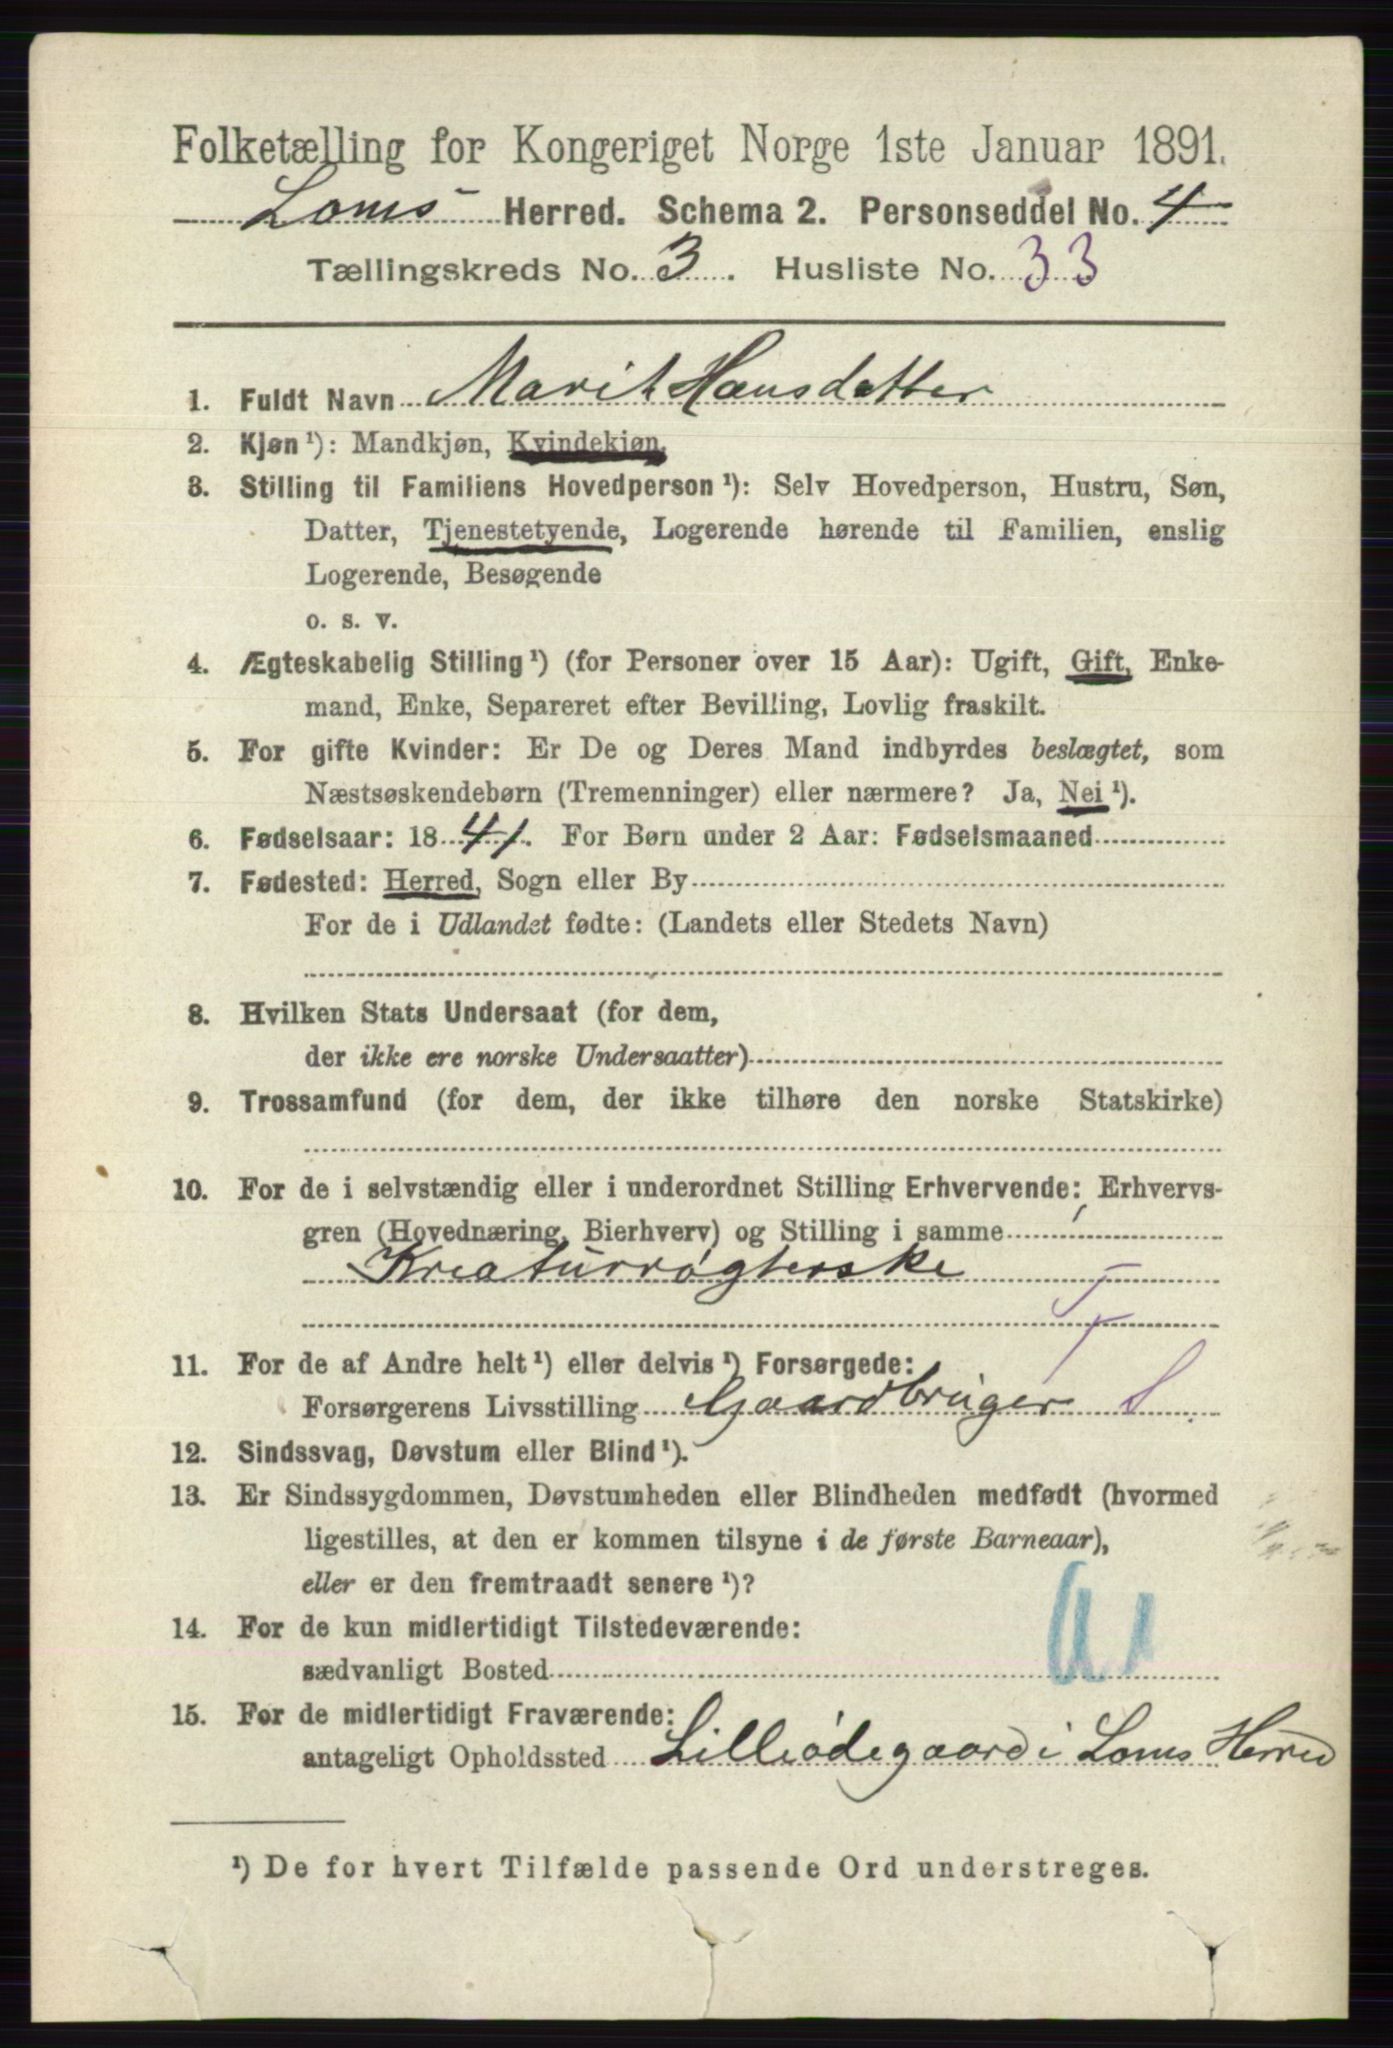 Folketælling for Kongeriget Norge 1ste Januar 1891.
Loms Herred. Schema 2. Personseddel No. 4
Tællingskreds No. 3. Husliste No. 33
1. Fuldt Navn Marit Hansdatter
2. Kjøn¹): Mandkjøn, Kvindekjøn.
3. Stilling til Familiens Hovedperson¹): Selv Hovedperson, Hustru, Søn,
Datter, Tjenestetyende, Logerende hørende til Familien, enslig
Logerende, Besøgende
o. s. v.
4. Ægteskabelig Stilling¹) (for Personer over 15 Aar): Ugift, Gift, Enke-
mand, Enke, Separeret efter Bevilling, Lovlig fraskilt.
5. For gifte Kvinder: Er De og Deres Mand indbyrdes beslægtet, som
Næstsøskendebørn (Tremenninger) eller nærmere? Ja, Nei¹).
6. Fødselsaar: 1841. For Børn under 2 Aar: Fødselsmaaned
7. Fødested: Herred, Sogn eller By
For de i Udlandet fødte: (Landets eller Stedets Navn)
8. Hvilken Stats Undersaat (for dem,
der ikke ere norske Undersaatter)
9. Trossamfund (for dem, der ikke tilhøre den norske Statskirke)
10. For de i selvstændig eller i underordnet Stilling Erhvervende: Erhvervs-
gren (Hovednæring, Bierhverv) og Stilling i samme
Kreaturrøgterske
T
11. For de af Andre helt¹) eller delvis¹) Forsørgede:
Forsørgerens Livsstilling Gaardbruger
12. Sindssvag, Døvstum eller Blind¹).
13. Er Sindssygdommen, Døvstumheden eller Blindheden medfødt (hvormed
ligestilles, at den er kommen tilsyne i de første Barneaar),
eller er den fremtraadt senere¹)?
14. For de kun midlertidigt Tilstedeværende:
sædvanligt Bosted
15. For de midlertidigt Fraværende:
antageligt Opholdssted Lilleødegaard i Loms Herred
¹) De for hvert Tilfælde passende Ord understreges.